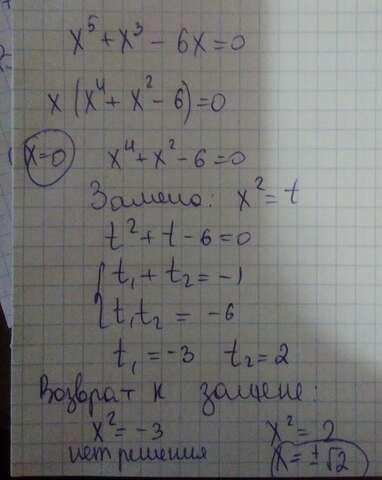 x⁵ + x³ − 6x = 0
x (x⁴ + x² − 6) = 0
x = 0 x⁴ + x² − 6 = 0
Замена: x² = t
t² + t − 6 = 0
{ t₁ + t₂ = −1
t₁t₂ = −6
t₁ = −3 t₂ = 2
Возврат к замене:
x² = −3 x² = 2
нет решения x = ±√2